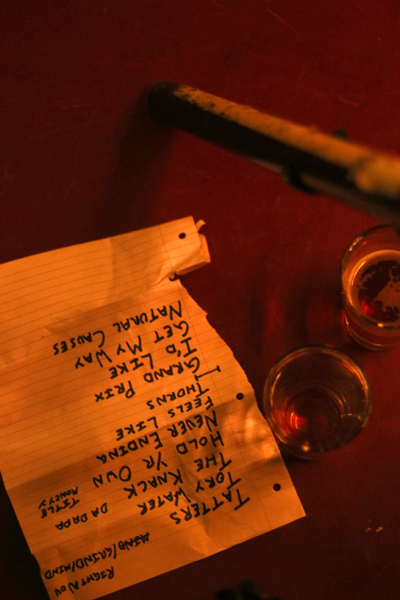 RIGHT NOW
MIND/GRIND/MIND
TATTERS
TORY WATER DA DADA
THE KNACK TITLE
HOLD YR OWN MONEY
NEVER ENDING
FEELS LIKE
THORNS
GRAND PRIX
I'D LIKE
GET MY WAY
NATURAL CAUSES